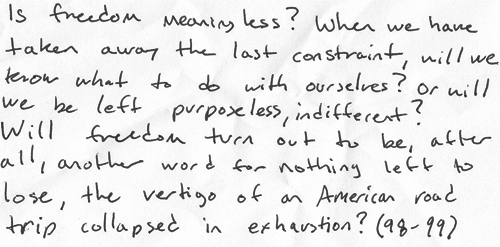 Is freedom meaningless? When we have
taken away the last constraint, will we
know what to do with ourselves? Or will
we be left purposeless, indifferent?
Will freedom turn out to be, after
all, another word for nothing left to
lose, the vertigo of an American road
trip collapsed in exhaustion? (98-99)